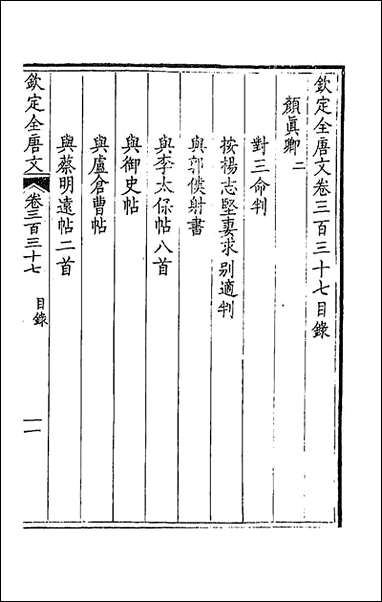 欽定全唐文卷三百三十七目錄
顏眞卿 二
對三命判
按楊志堅妻求別適判
與郭僕射書
與李太保帖八首
與御史帖
與盧倉曹帖
與蔡明遠帖二首
欽定全唐文 卷三百三十七 目錄 一